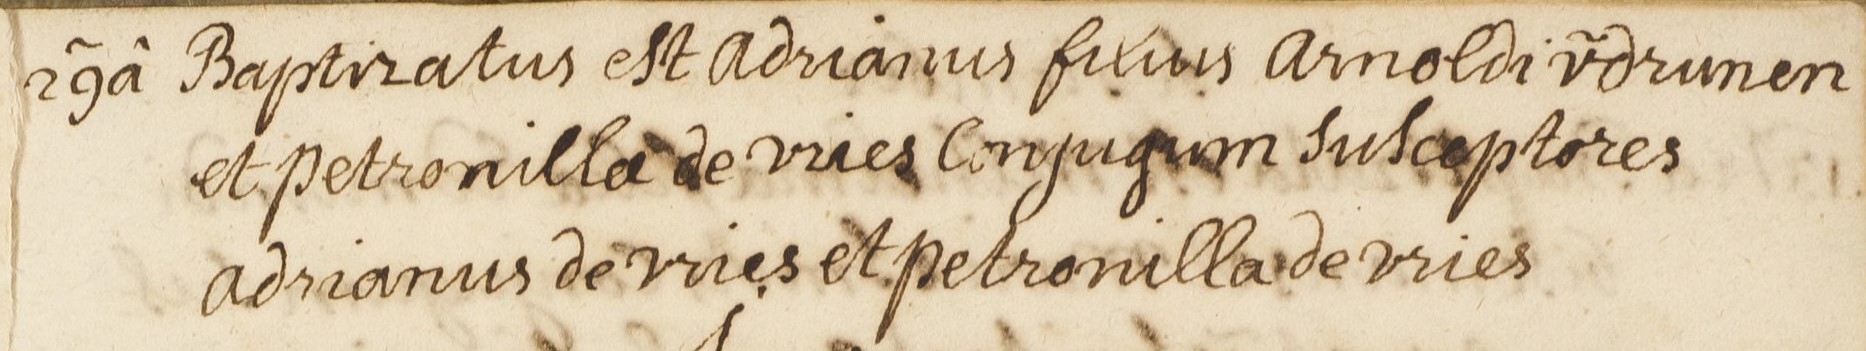 29â Baptizatus est Adrianus filius Arnoldi v̄drunen
et petronilla de vries Conjugum Susceptores
adrianus de vries et petronilla de vries